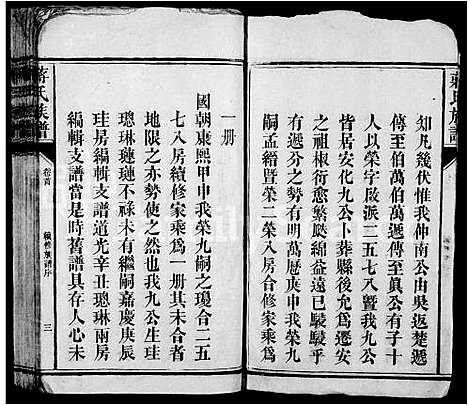 蔣氏族譜
知凡幾伏惟我仲南公由吳返楚遞
傳至伯萬伯萬遞傳至眞公有子十
人以榮字啟派二五七八暨我榮九
皆居安化九公卜葬縣後允爲遷安
之祖椒衍愈繁瓞綿益遠已駸駸乎
有遞分之勢明萬曆庚申我榮九
嗣孟縉暨榮二榮入房合修家乘爲
一册
國朝康熙甲申我榮九嗣之瓊合二五
七入房續修家乘爲一册其未合者
地限之亦勢使之然也我九公生珪
璁琳璉璉不祿未有繼嗣嘉慶庚辰
珪房編輯支譜道光辛丑璁琳兩房
編輯支譜當是時舊譜具在人心未
蔣氏族譜
卷首
續修族譜序
三